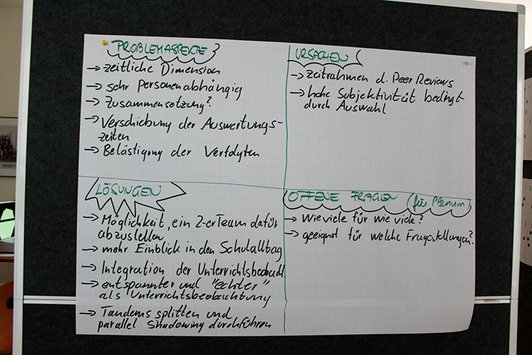 PROBLEMASPEKTE
→ zeitliche Dimension
→ sehr personenabhängig
→ Zusammensetzung?
→ Verschiebung der Auswertungs-
zeiten
→ Belästigung der
URSACHEN
→ Zeitrahmen d. Peer Reviews
→ hohe Subjektivität bedingt
durch Auswahl
LÖSUNGEN
→ Möglichkeit, ein 2-erTeam dafür
abzustellen
→ mehr Einblick in den Schulalltag
→ Integration der
→ entspannter und "echter"
als Unterrichtsbeobachtung
→ Tandems splitten und
parallel Shadowing durchführen
OFFENE FRAGEN (für Plenum)
→ Wieviele für wie viele?
→ geeignet für welche Fragestellungen?